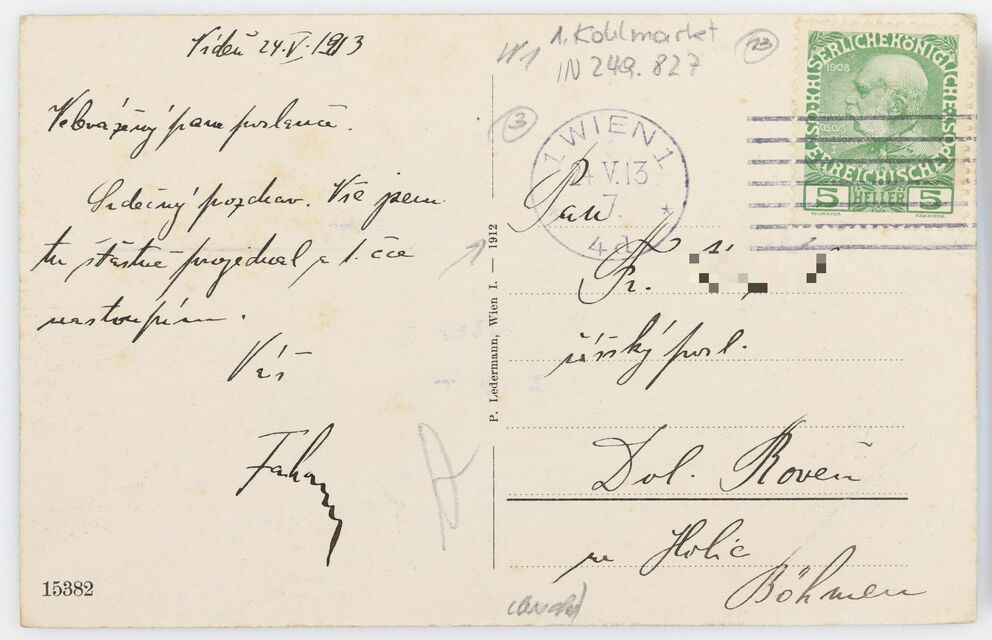 Vídeň 24.V.1913
Velevážený pane poslanče.
Srdečný pozdrav. Vše jsem
tu šťastně projednal a 1. čce
nastoupím.
Váš
15382
P. Ledermann, Wien I. — 1912
W1
1. Kohlmarkt
IN 249.827
13
3
1 WIEN 1
24 V.13
7.
* 4d
KAISERLICHEKÖNIGLICHE
ÖSTERREICHISCHE
1908
5 HELLER 5
Pan
Fr.
říšský posl.
Dol. Roveň
p. Holic
Böhmen